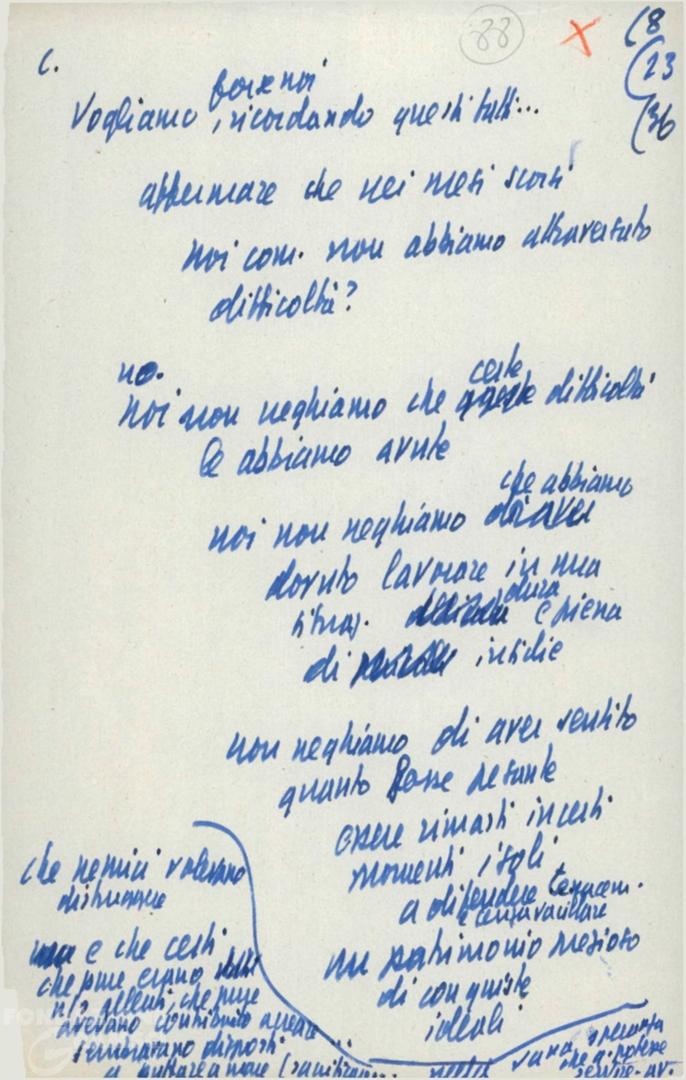 88
(8
(23
(36
c.
forse noi
Vogliamo, ricordando questi fatti...
affermare che nei mesi scorsi
noi com. non abbiamo attraversato
difficoltà?
no.
certe
noi non neghiamo che queste difficoltà
le abbiamo avute
che abbiamo
noi non neghiamo di aver
dovuto lavorare in una
dura
situaz. e piena
di insidie
non neghiamo di aver sentito
quanto fosse pesante
essere rimasti in certi
momenti i soli
a difendere tenacem.
e senza vacillare
un patrimonio prezioso
di conquiste
ideali
che nemici volevano
distruggere
ma e che certi
che pure erano stati
ns. allenti, che pure
avevano contribuito a creare
sembravano disposti
a buttare a mare